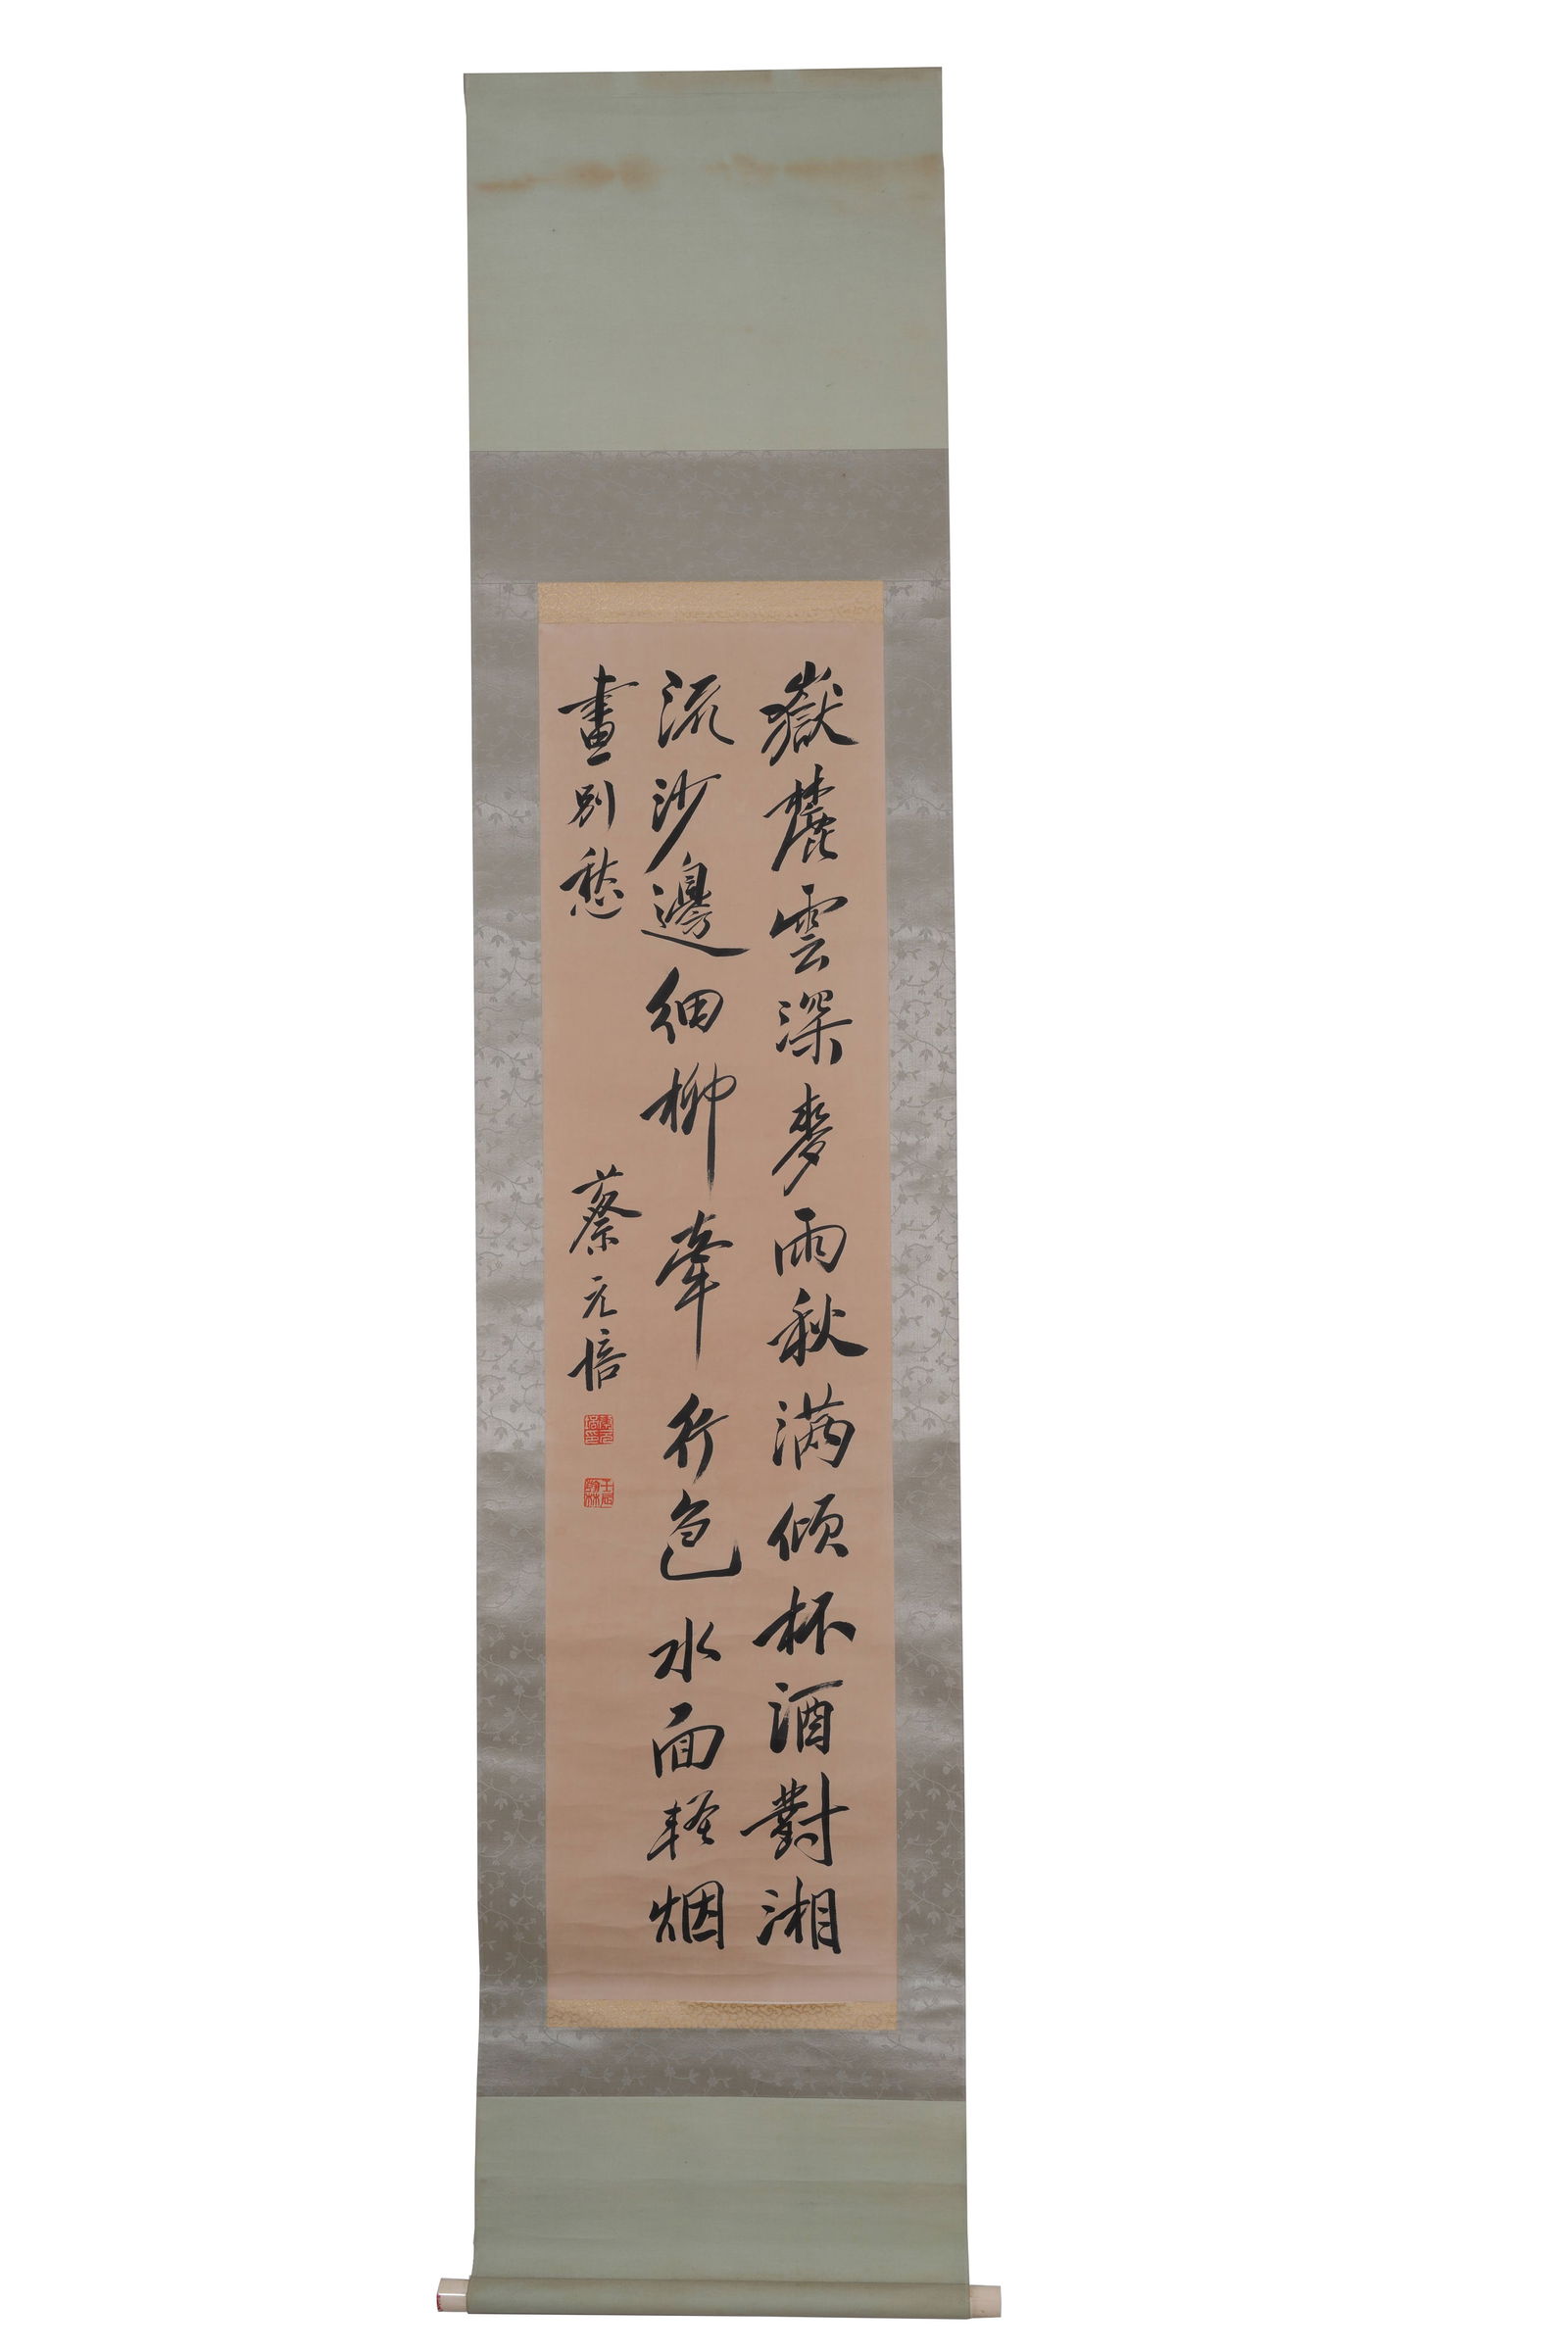 嶽麓雲深麥雨秋满倾杯酒對湘
流沙邊細柳牽行色水面輕烟
畫別愁
蔡元培